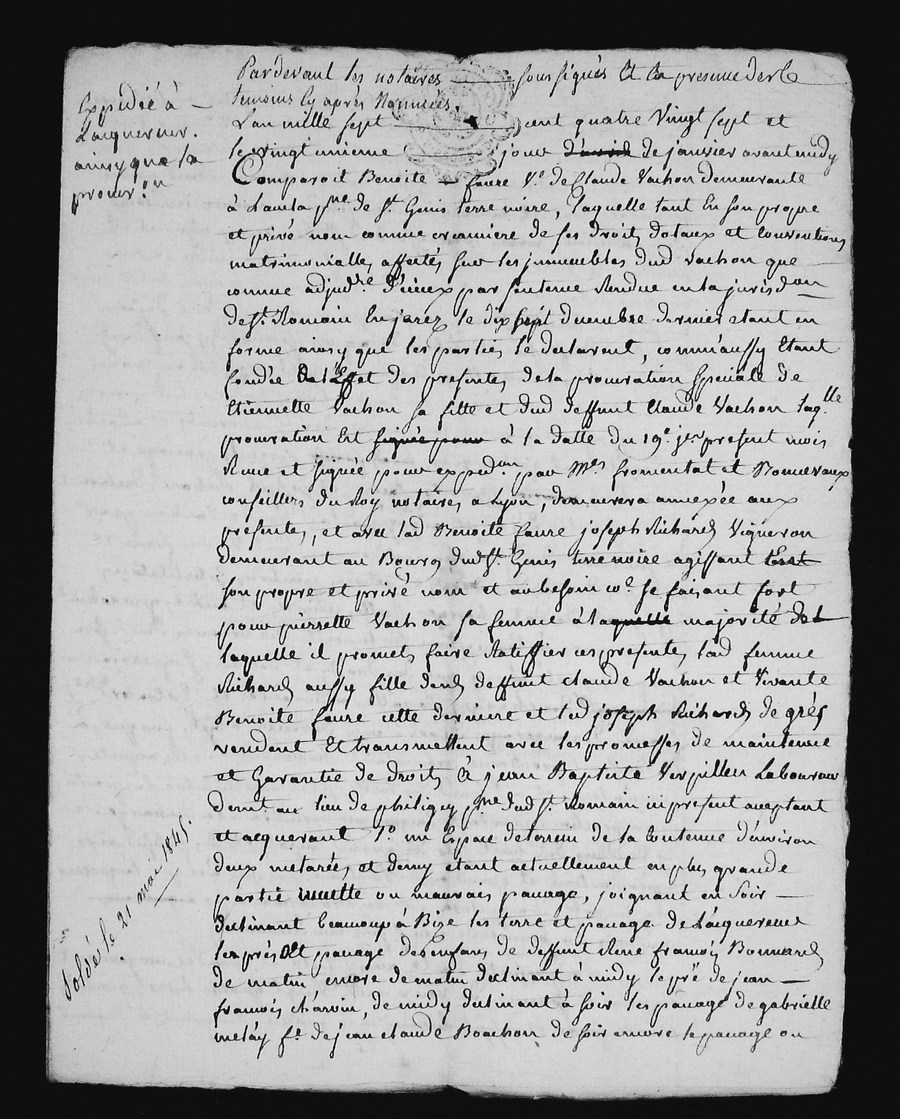 Expedié à
Lacquereur.
ainsy que la
procur.on
Pardevant les notaires soussignés Et En presence des
temoins cy après Nommées.
L'an mille sept cent quatre Vingt sept et
le vingt unieme jour d'avril de janvier avant midy
Comparoit Benoite faure V.e de Claude Vachon demeurante
à Laula p.sse de S.t Genis terre noire, Laquelle tant En son propre
et privé nom comme creanciere de ses droits dotaux et Conventions
matrimonialles affectés sur les immeubles dud Vachon que
comme adjud.re d'iceux par sentence Rendue en la jurisd.on
de S.t Romain En jarez le dix sept decembre dernier etant en
forme ainsy que les parties le declarent, comm'aussy Etant
fondée de l'Effet des presentes de la procuration Speciale de
Etiennette Vachon sa fille et dud deffunt Claude Vachon laq.lle
procuration Est signée pour à la datte du 19.e present mois
Reçue et signée pour exped.on par M.es fromental et
conseillers du Roy notaires a Lyon, demeurera annexée aux
presentes, et avec lad Benoite faure joseph Richard Vigneron
demeurant au Bourg dud S.t Genis terre noire agissant tant
son propre et privé nom et au besoin co.e se faisant fort
pour pierrette Vachon sa femme à laquelle majorité de
laquelle il promet faire Ratiffier ces presentes, lad femme
Richard aussy fille dud deffunt claude Vachon et Vivante
Benoite faure cette derniere et led joseph Richard de grés
vendent Et transmettent avec les promesses de maintenue
et Garantie de droits à jean Baptiste Verpilleu Laboureur
dem.t au lieu de philigey p.sse dud S.t Romain ici present aceptant
et acquerant 1.o un Espace de terrein de la Contenue d'environ
deux metarées et demy etant actuellement en plus grande
partie inculte ou mauvais pacage, joignant en soir
declinant beaucoup à Bize les terre et pacage de Lacquereur
les prés et pacage des Enfans de deffunt René francois Bonnard
de matin encore de matin declinant à midy le pré de jean
francois charvin, de midy declinant à soir les pacage de gabrielle
melay f.e de jean claude Boachon de soir encore le pacage ou
Soldé le 21 mai 1845.